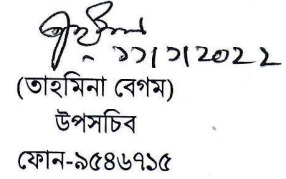 ১১/১/2022
(তাহমিনা বেগম)
উপসচিব
ফোন-৯৫৪৬৭১৫